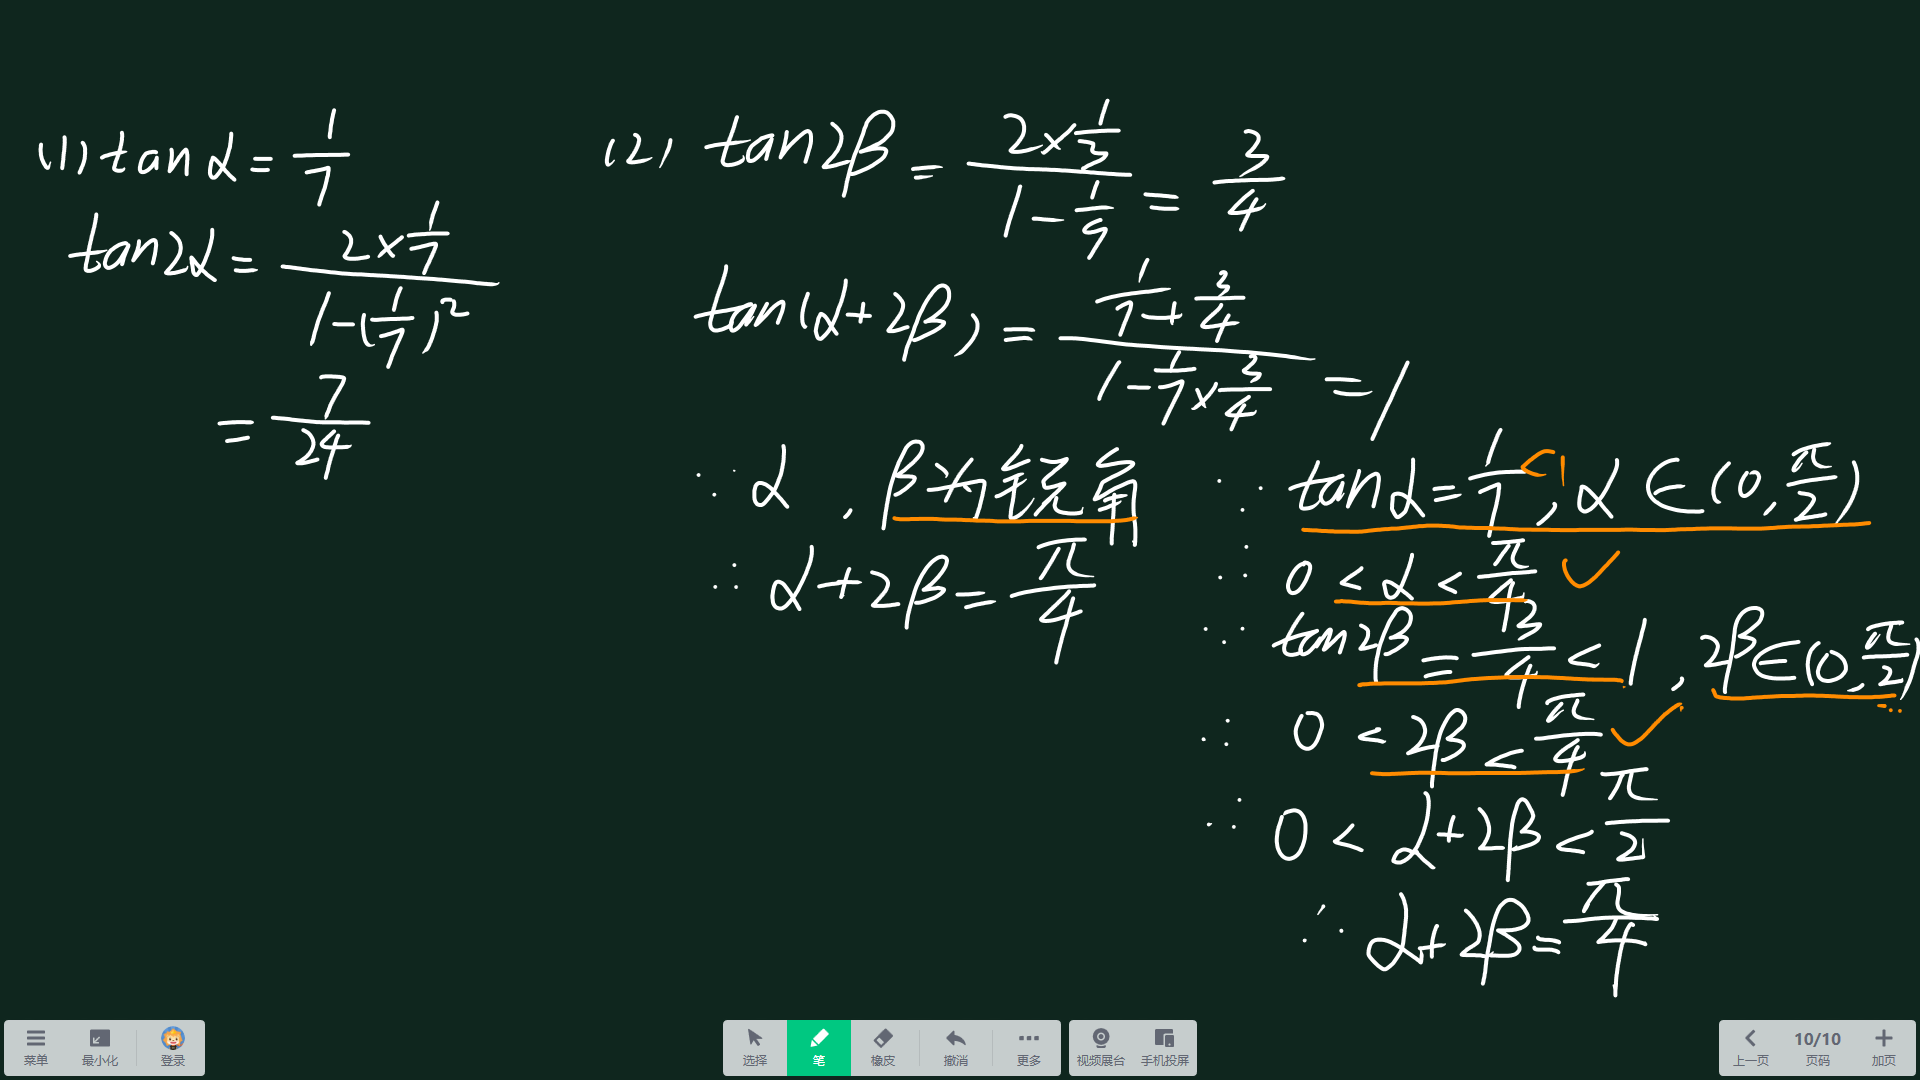 (1) tanα = 1/7
tan2α = (2×1/7)/(1-(1/7)²)
= 7/24
(2) tan2β = (2×1/3)/(1-1/9) = 3/4
tan(α+2β) = (1/7+3/4)/(1-1/7×3/4) = 1
∵ α,β为锐角
∴ α+2β = π/4
∵ tanα = 1/7 <1, α∈(0,π/2)
∴ 0<α<π/4
∵ tan2β = 3/4 < 1, 2β∈(0,π/2)
∴ 0<2β<π/4
∴ 0<α+2β<π/2
∴ α+2β=π/4
菜单 最小化 登录 选择 笔 橡皮 撤消 更多 视频展台 手机投屏 上一页 10/10 页码 加页